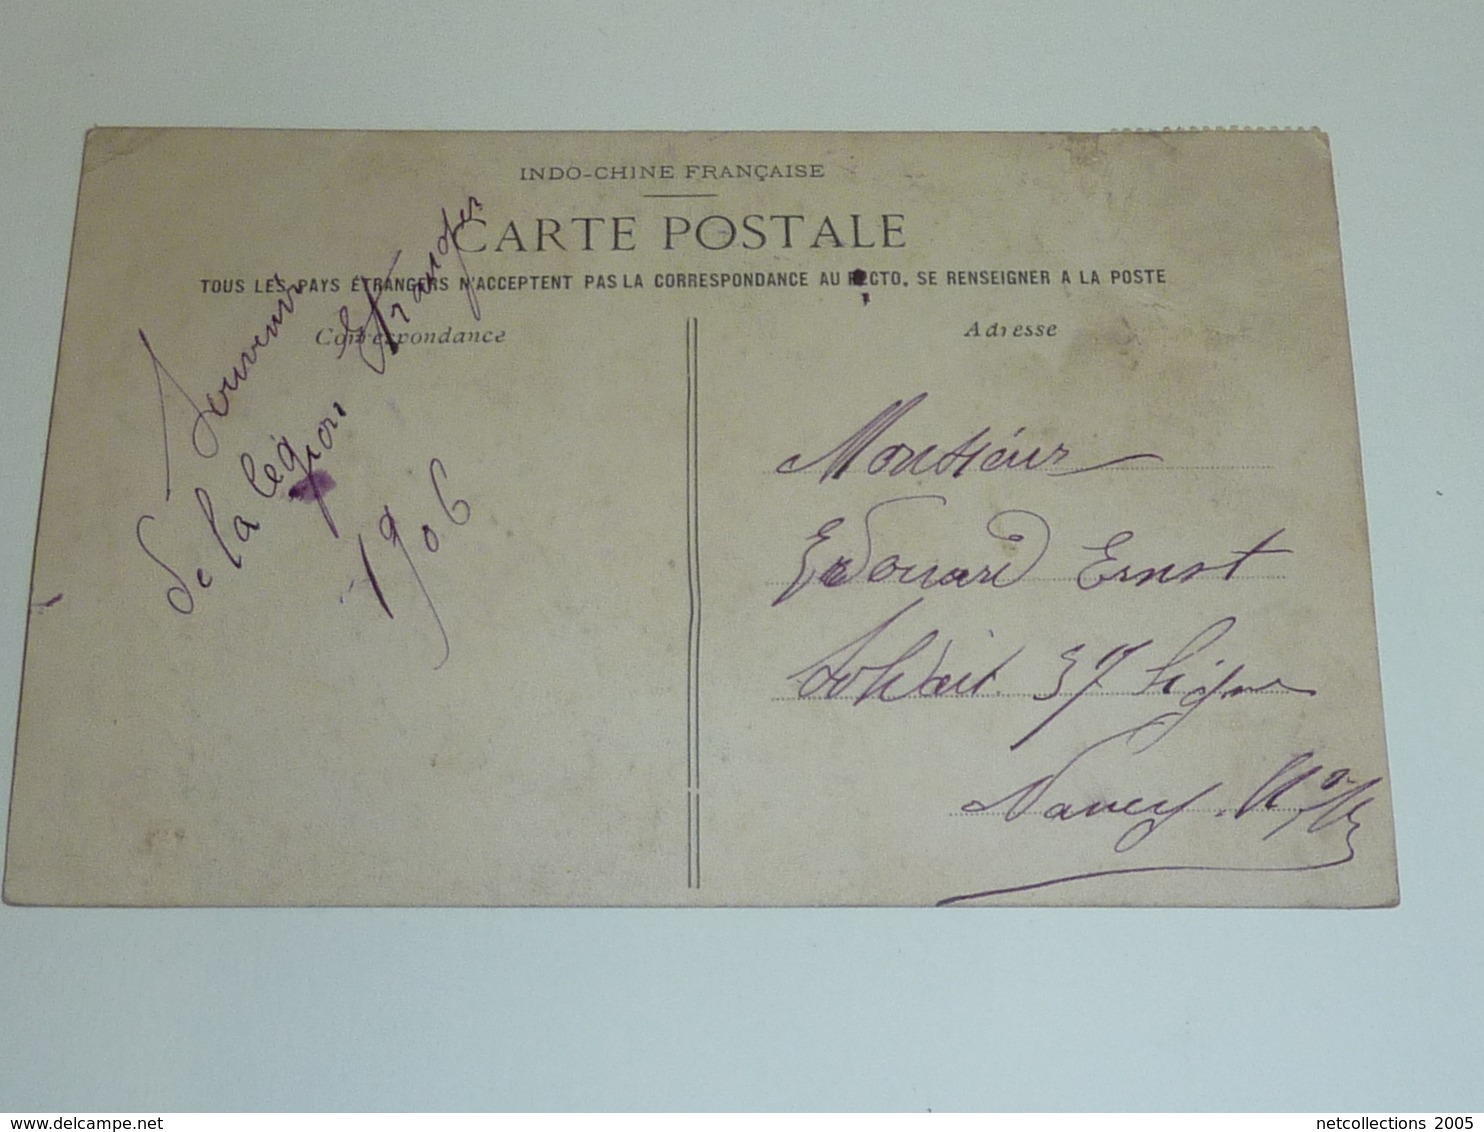 INDO-CHINE FRANÇAISE
CARTE POSTALE
TOUS LES PAYS ÉTRANGERS N'ACCEPTENT PAS LA CORRESPONDANCE AU RECTO, SE RENSEIGNER A LA POSTE
Correspondance
Adresse
Souvenir
de la légion Etranger
1906
Monsieur
Edouard Ernst
Soldait 37 Ligne
Nancy
netcollections 2005